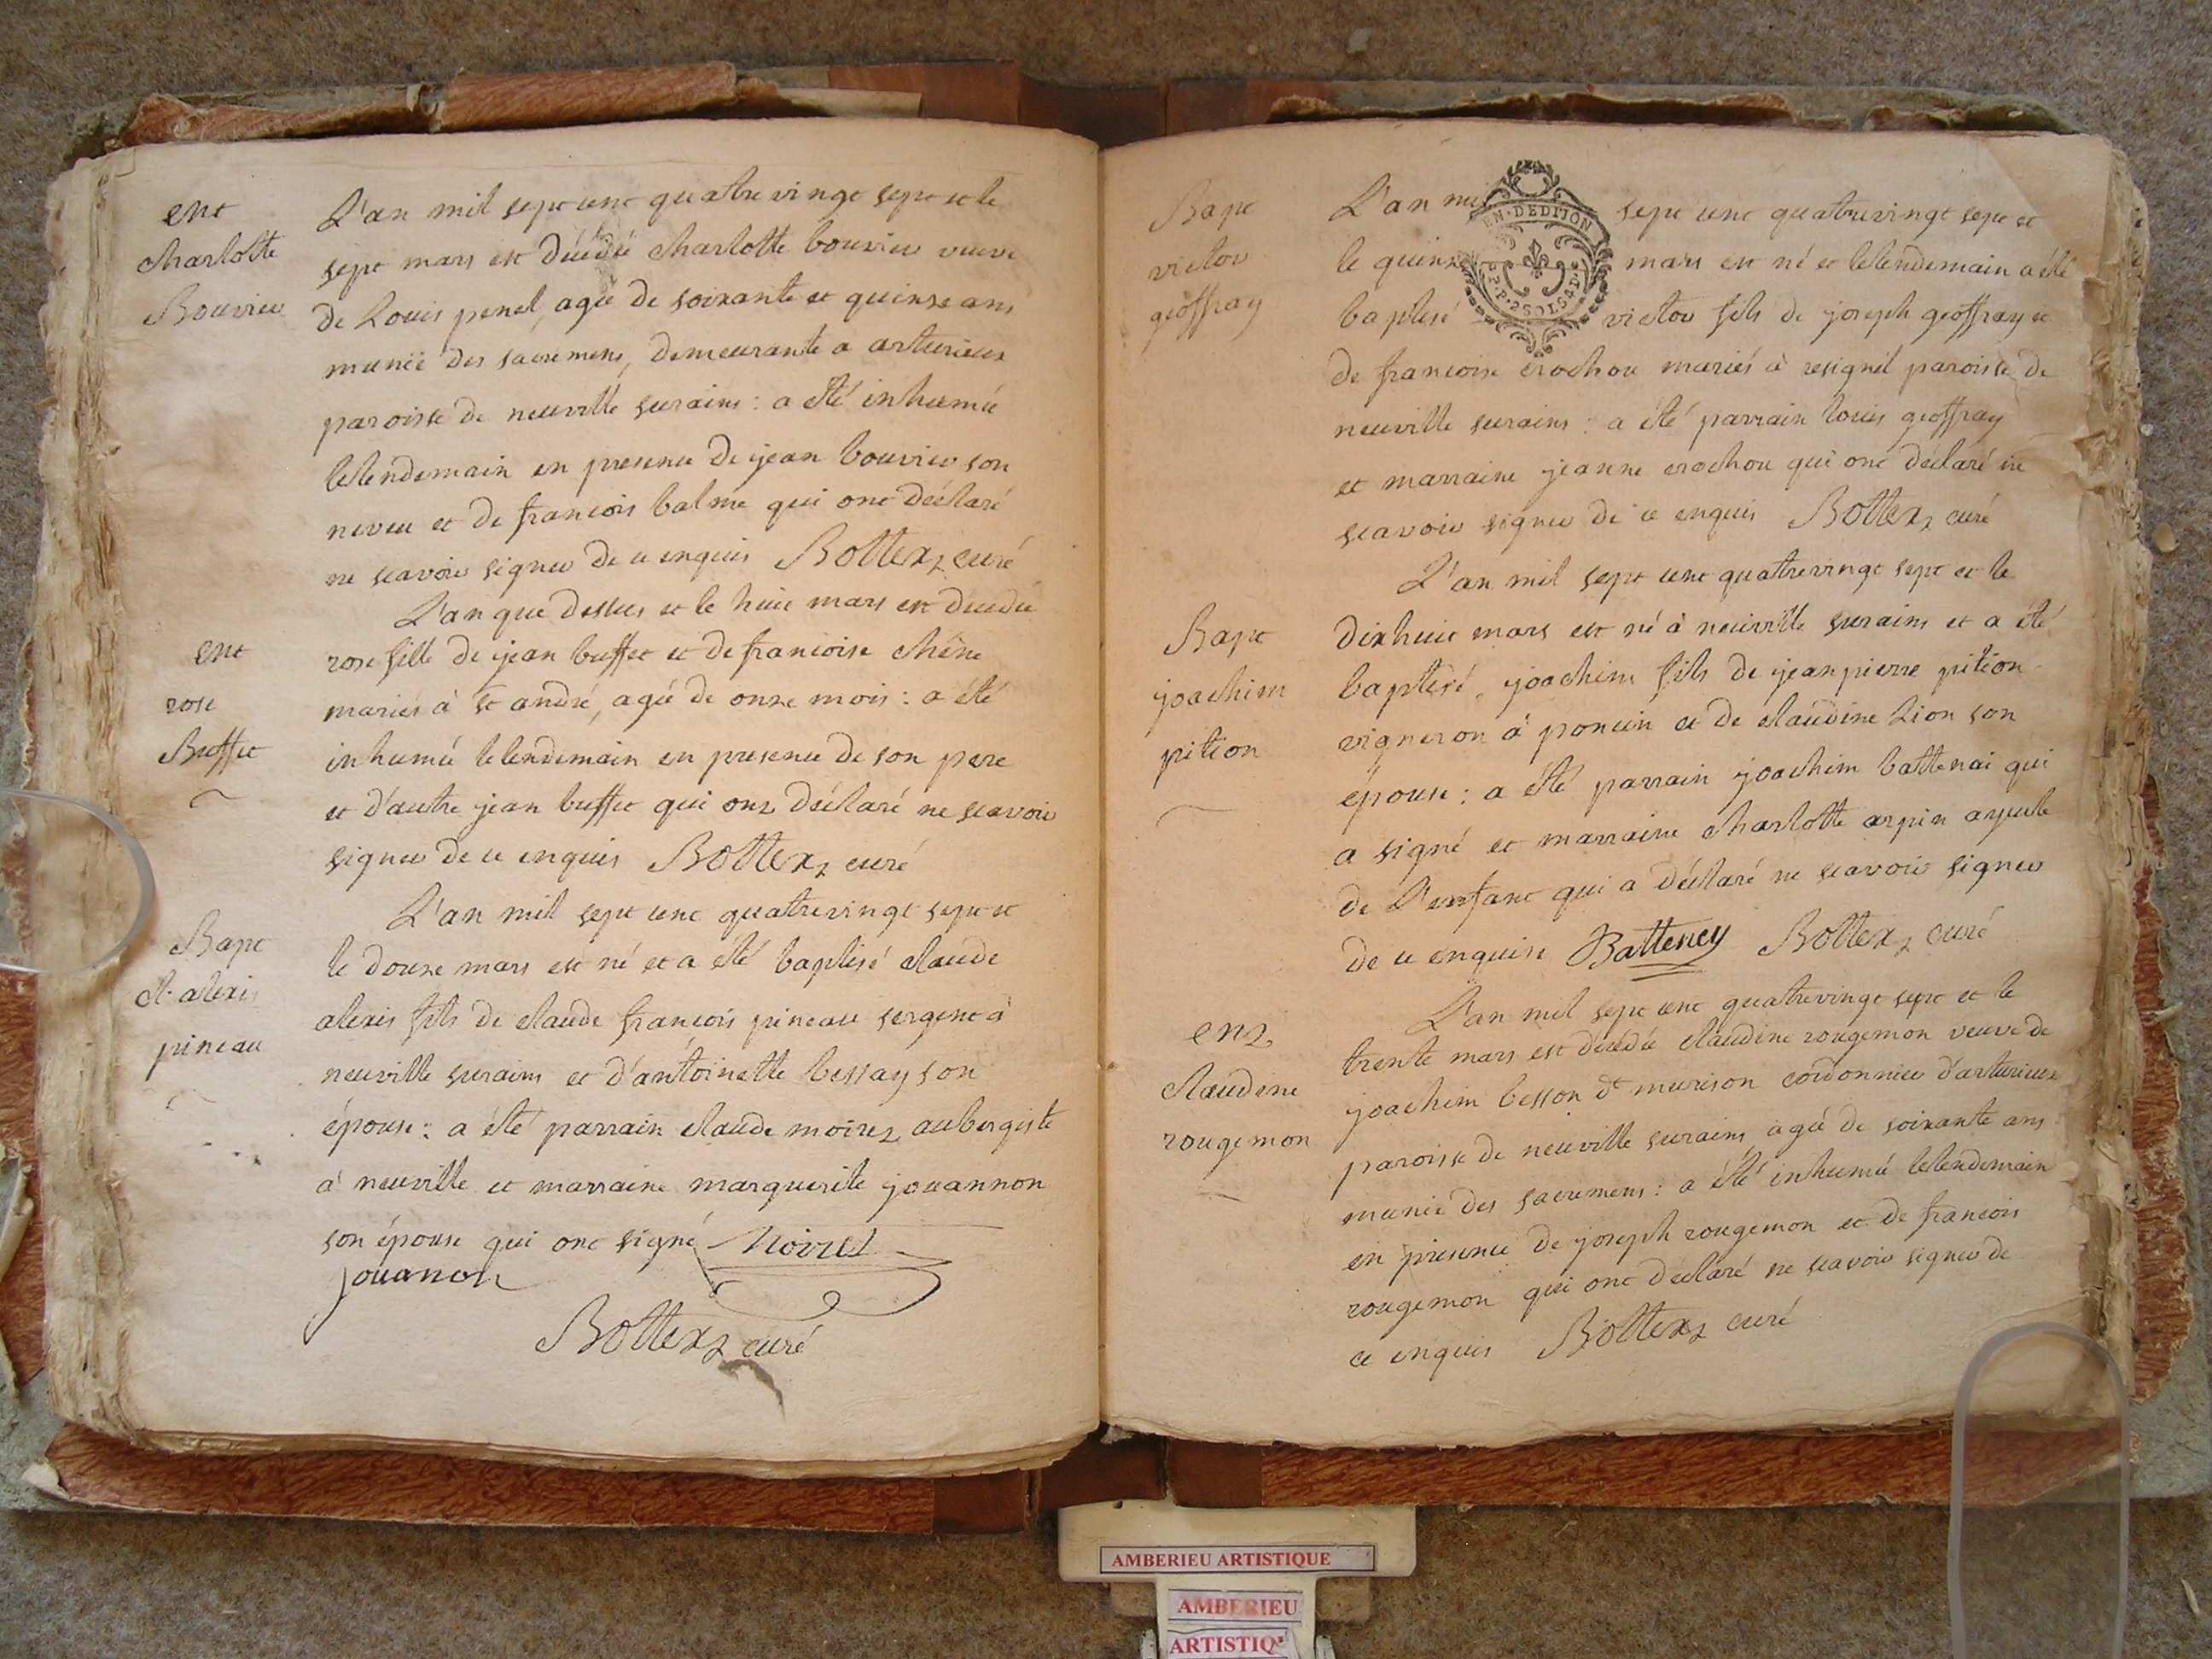 ent
charlotte
Bouvier
L'an mil sept cent quatre vingt sept et le
sept mars est décédée charlotte bouvier veuve
de Louis penel, agée de soixante et quinze ans
munie des sacremens, demeurante a arturieux
paroisse de neuville surains : a été inhumée
lelendemain en presence de jean bouvier son
neveu et de francois balme qui ont déclaré
ne scavoir signer de ce enquis Bottex, curé
ent
rose
Buffet
L'an que dessus et le huit mars est decedée
rose fille de jean buffet et de francoise chêne
mariés à St andré, agée de onze mois : a été
inhumée lelendemain en presence de son pere
et d'autre jean buffet qui ont déclaré ne scavoir
signer de ce enquis Bottex, curé
Bapt
cl. alexis
pineau
L'an mil sept cent quatrevingt sept et
le douze mars est né et a été baptisé claude
alexis fils de claude francois pineau sergent à
neuville surains et d'antoinette bessay son
épouse : a été parrain claude moiret, aubergiste
à neuville et marraine marguerite jouannon
son épouse qui ont signé Moiret
jouanon
Bottex, curé
Bapt
victor
geoffray
L'an mil sept cent quatrevingt sept et
EN·DEDITION
le quinze mars est né et lelendemain a été
baptisé victor fils de joseph geoffray et
de francoise crochou mariés à resignel paroisse de
neuville surains : a été parrain louis geoffray
et marraine jeanne crochou qui ont déclaré ne
scavoir signer de ce enquis Bottex, curé
Bapt
joachim
pition
L'an mil sept cent quatrevingt sept et le
dixhuit mars est né à neuville surains et a été
baptisé, joachim fils de jeanpierre pition
vigneron à poncin et de claudine Lion son
épouse : a été parrain joachim battenai qui
a signé et marraine charlotte arpin ayeule
de L'enfant qui a déclaré ne scavoir signer
de ce enquise Batteney Bottex, curé
ent,
claudine
rougemon
L'an mil sept cent quatrevingt sept et le
trente mars est décédée claudine rougemon veuve de
joachim besson dt murison cordonnier d'arturieux
paroisse de neuville surains, agée de soixante ans
munie des sacremens : a été inhumée lelendemain
en presence de joseph rougemon et de francois
rougemon qui ont declaré ne scavoir signer de
ce enquis Bottex, curé
AMBERIEU ARTISTIQUE
AMBERIEU
ARTISTIQ